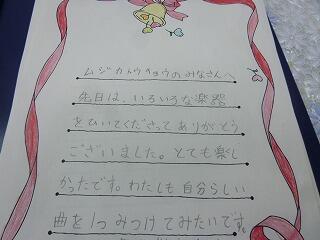 ムジカトウキョウのみなさんへ
先日は、いろいろな楽器
をひいてくださってありがとう
ございました。とても楽し
かったです。わたしも自分らしい
曲を1つみつけてみたいです。